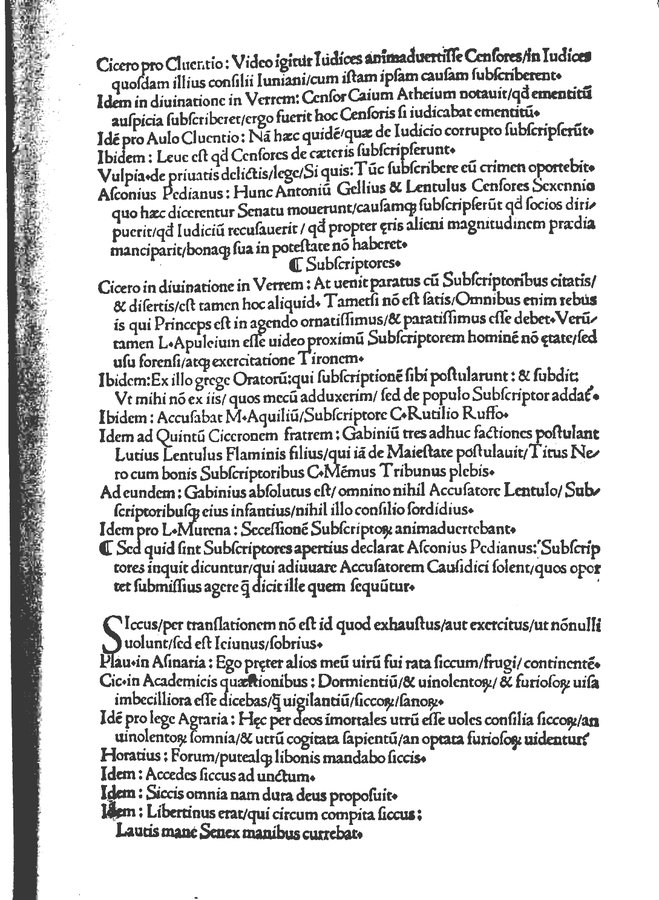 Cicero pro Cluentio : Video igitur Iudices animaduertisse Censores/in Iudices
quosdam illius consilii Iuniani/cum istam ipsam causam subscriberent.
Idem in diuinatione in Verrem: Censor Caium Atheium notauit/qđ ementitū
auspicia subscriberet/ergo fuerit hoc Censoris si iudicabat ementitū.
Idē pro Aulo Cluentio : Nā hæc quidē/quæ de Iudicio corrupto subscripserūt.
Ibidem : Leue est qđ Censores de cæteris subscripserunt.
Vulpia.de priuatis delictis/lege/Si quis: Tūc subscribere eū crimen oportebit.
Asconius Pedianus : Hunc Antoniū Gellius & Lentulus Censores Sexennio
quo hæc dicerentur Senatu mouerunt/causamqꝫ subscripserūt qđ socios diri/
puerit/qđ Iudiciū recusauerit / qđ propter ęris alieni magnitudinem prædia
manciparit/bonaqꝫ sua in potestate nō haberet.
¶ Subscriptores.
Cicero in diuinatione in Verrem : At uenit paratus cū Subscriptoribus citatis/
& disertis/est tamen hoc aliquid. Tametsi nō est satis/Omnibus enim rebus
is qui Princeps est in agendo ornatissimus/& paratissimus esse debet.Verū/
tamen L.Apuleium esse uideo proximū Subscriptorem hominē nō ętate/sed
usu forensi/atqꝫ exercitatione Tironem.
Ibidem:Ex illo grege Oratorū:qui subscriptionē sibi postularunt : & subdit:
Vt mihi nō ex iis/ quos mecū adduxerim/ sed de populo Subscriptor addat̃.
Ibidem : Accusabat M.Aquiliū/Subscriptore C.Rutilio Ruffo.
Idem ad Quintū Ciceronem fratrem : Gabiniū tres adhuc factiones postulant
Lutius Lentulus Flaminis filius/qui iā de Maiestate postulauit/Titus Ne/
ro cum bonis Subscriptoribus C.Mēmus Tribunus plebis.
Ad eundem : Gabinius absolutus est/ omnino nihil Accusatore Lentulo/ Sub/
scriptoribusqꝫ eius infantius/nihil illo consilio sordidius.
Idem pro L.Murena : Secessionē Subscriptoꝝ animaduertebant.
¶ Sed quid sint Subscriptores apertius declarat Asconius Pedianus: Subscrip
tores inquit dicuntur/qui adiuuare Accusatorem Causidici solent/quos opor
tet submissius agere q̄ dicit ille quem sequūtur.
SIccus/per translationem nō est id quod exhaustus/aut exercitus/ut nōnulli
uolunt/sed est Ieiunus/sobrius.
Plau.in Asinaria : Ego pręter alios meū uirū fui rata siccum/frugi/ continentē.
Cic.in Academicis quæstionibus : Dormientiū/& uinolentoꝝ/ & furiosoꝝ uisa
imbecilliora esse dicebas/q̄ uigilantiū/siccoꝝ/sanoꝝ.
Idē pro lege Agraria : Hęc per deos imortales utrū esse uoles consilia siccoꝝ/an
uinolentoꝝ somnia/& utrū cogitata sapientū/an optata furiosoꝝ uidentur̃
Horatius : Forum/putealqꝫ libonis mandabo siccis.
Idem : Accedes siccus ad unctum.
Idem : Siccis omnia nam dura deus proposuit.
Idem : Libertinus erat/qui circum compita siccus :
Lautis mane Senex manibus currebat.